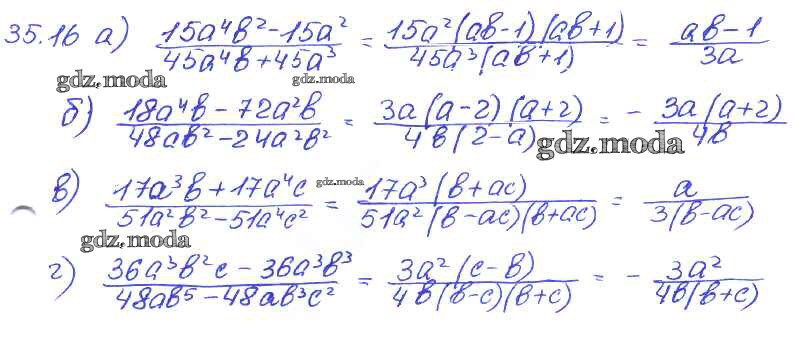 35.16 а) (15a⁴b² - 15a²)/(45a⁴b + 45a³) = (15a²(ab-1)(ab+1))/(45a³(ab+1)) = (ab-1)/(3a)
gdz.moda gdz.moda
б) (18a⁴b - 72a²b)/(48ab² - 24a²b²) = (3a(a-2)(a+2))/(4b(2-a)) = - (3a(a+2))/(4b)
gdz.moda
в) (17a³b + 17a⁴c)/(51a²b² - 51a⁴c²) = (17a³(b+ac))/(51a²(b-ac)(b+ac)) = a/(3(b-ac))
gdz.moda
gdz.moda
г) (36a³b²c - 36a³b³)/(48ab⁵ - 48ab³c²) = (3a²(c-b))/(4b(b-c)(b+c)) = - (3a²)/(4b(b+c))